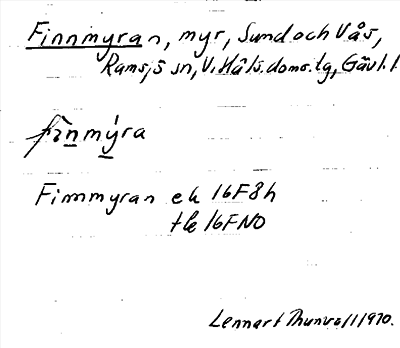 Finnmyran, myr, Sund och Vås,
Ramsjö sn, V. Häls. doms. tg, Gävl. l
fìnmýra
Finnmyran ek 16F8h
tk 16FNO
Lennart Thunvall 1970.